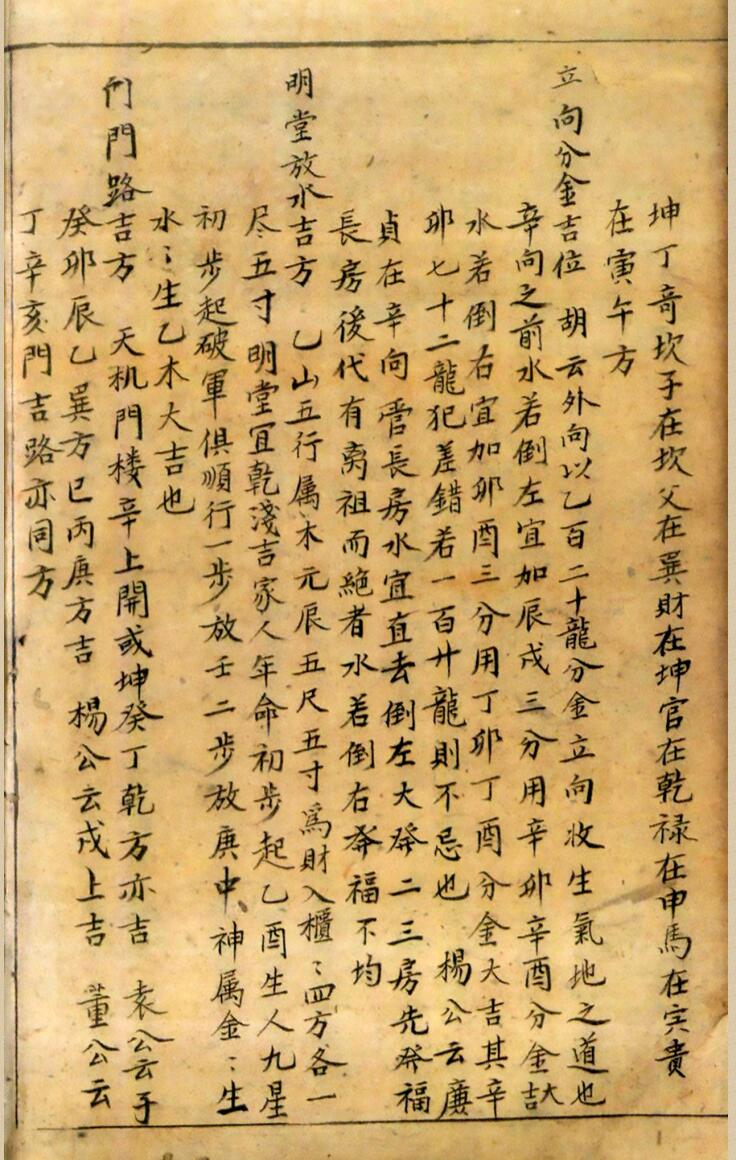 坤丁奇坎子在坎父在巽財在坤官在乾禄在申馬在寅貴
在寅午方
立向分金吉位 胡云外向以乙百二十龍分金立向收生氣地之道也
辛向之前水若倒左宜加辰戍三分用辛卯辛酉分金大吉
水若倒右宜加卯酉三分用丁卯丁酉分金大吉其辛
卯七十二龍犯差錯若一百廾龍則不忌也 楊公云廉
貞在辛向管長房水宜直去倒左大發二三房先發福
長房後代有离祖而絶者水若倒右發福不均
明堂放水吉方 乙山五行属木元辰五尺五寸爲財入櫃〻四方各一
尽五寸明堂宜乾淺吉家人年命初步起乙酉生人九星
初步起破軍俱順行一步放壬二步放庚中神属金〻生
水〻生乙木大吉也
門路吉方 天机門楼辛上開或坤癸丁乾方亦吉 袁公云子
癸卯辰乙巽方巳丙庚方吉 楊公云戍上吉 董公云
丁辛亥門吉路亦同方